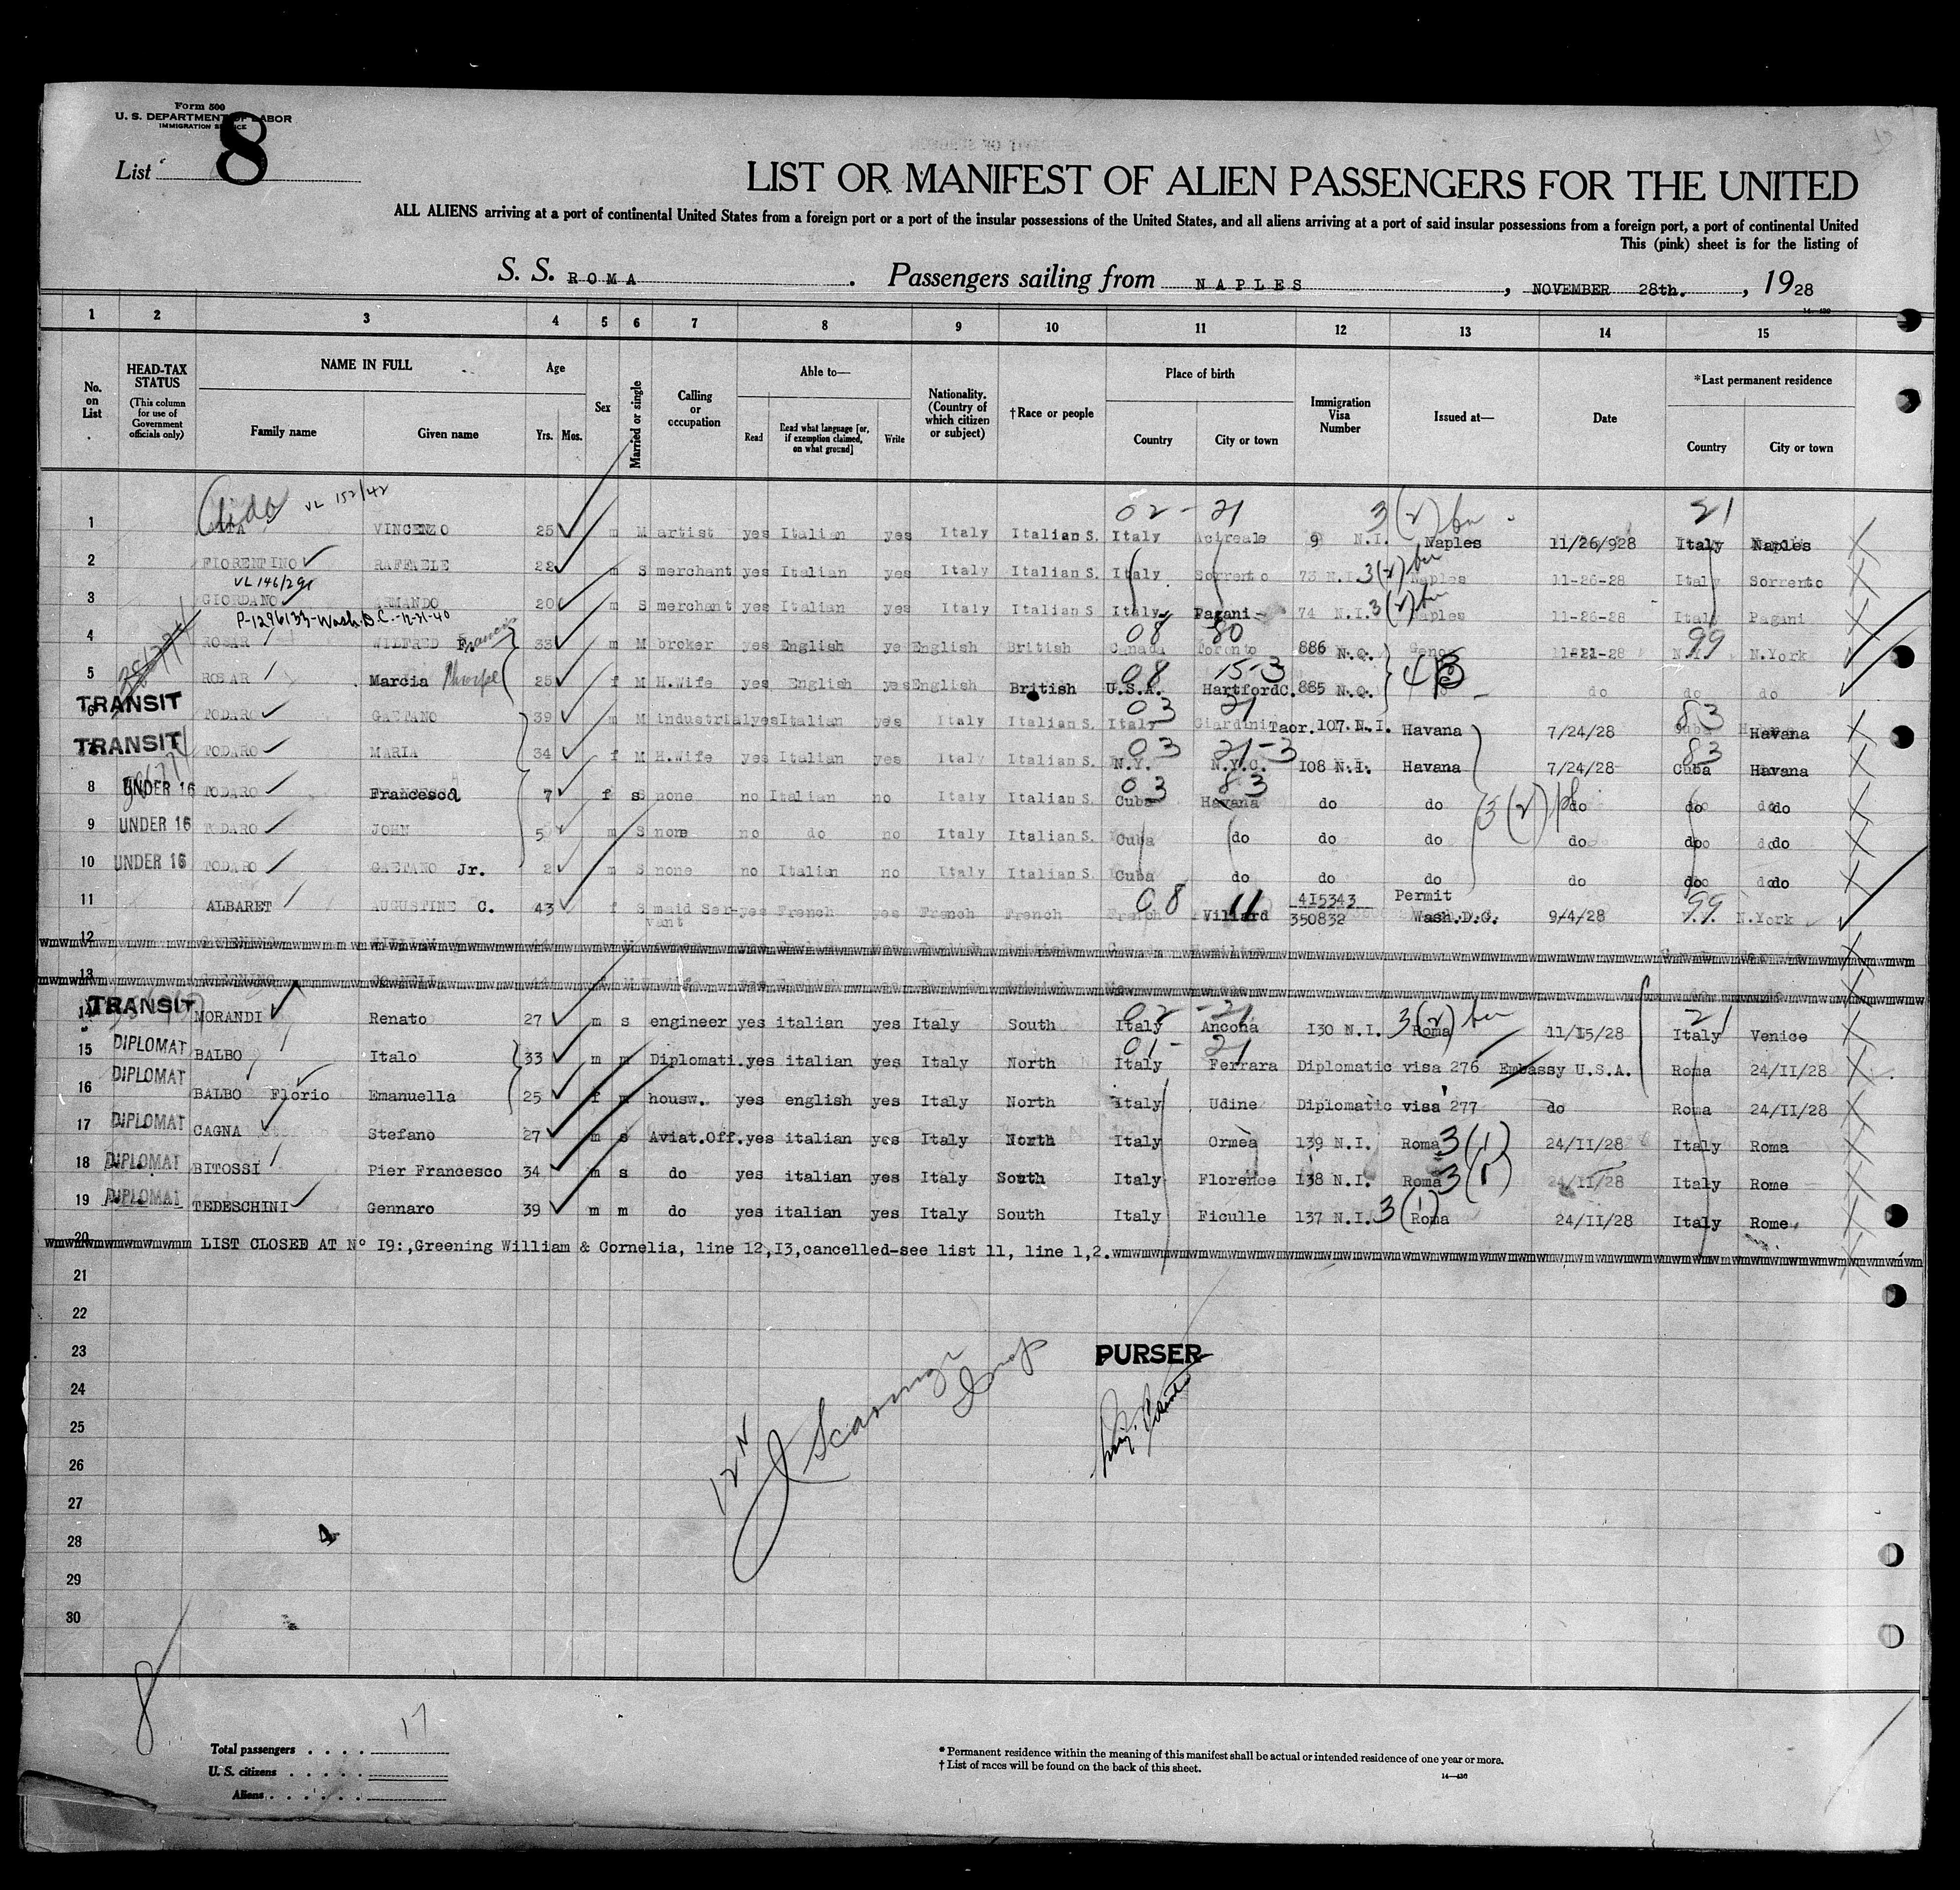 Form 500
U. S. DEPARTMENT OF LABOR
IMMIGRATION SERVICE
List 8
LIST OR MANIFEST OF ALIEN PASSENGERS FOR THE UNITED
ALL ALIENS arriving at a port of continental United States from a foreign port or a port of the insular possessions of the United States, and all aliens arriving at a port of said insular possessions from a foreign port, a port of continental United
This (pink) sheet is for the listing of
S. S. ROMA . Passengers sailing from NAPLES , NOVEMBER 28th. , 1928
1 2 3 4 5 6 7 8 9 10 11 12 13 14 15
No. on List HEAD-TAX STATUS (This column for use of Government officials only) NAME IN FULL Family name Given name Age Yrs. Mos. Sex Married or single Calling or occupation Able to— Read Read what language [or, if exemption claimed, on what ground] Write Nationality. (Country of which citizen or subject) †Race or people Place of birth Country City or town Immigration Visa Number Issued at— Date *Last permanent residence Country City or town
VL 152/42 02 - 21 3(2) 21
1 VINCENZO 25 m M artist yes Italian yes Italy Italian S. Italy Acireale 9 N.I. Naples 11/26/928 Italy Naples
2 FIORENTINO RAFFAELE 22 m S merchant yes Italian yes Italy Italian S. Italy Sorrento 73 N.I. 3(2) Naples 11-26-28 Italy Sorrento
VL 146/291
3 GIORDANO ARMANDO 20 m S merchant yes Italian yes Italy Italian S Italy Pagani 74 N.I. 3(2) Naples 11-26-28 Italy Pagani
P-1296133-Wash.D.C.-11-21-40 08 80 99
4 ROSAR WILFRED Francis 33 m M broker yes English ye English British Canada Toronto 886 N.Q. Genoa 11-21-28 N.Y. N.York
08 15-3
5 ROSAR Marcia 25 f M H.Wife yes English yes English British U.S.A. Hartford C. 885 N.Q. do do do
03 21 83
6 TRANSIT TODARO GAETANO 39 m M industrial yes Italian yes Italy Italian S. Italy Giardini Taor. 107 N.I. Havana 7/24/28 Cuba Havana
03 21-3 83
TRANSIT TODARO MARIA 34 f M H.Wife yes Italian yes Italy Italian S. N.Y. N.Y.C. 108 N.I. Havana 7/24/28 Cuba Havana
03 83
8 UNDER 16 TODARO Francesca 7 f s none no Italian no Italy Italian S. Cuba Havana do do 3(2) do do do
9 UNDER 16 TODARO JOHN 5 m S none no do no Italy Italian S. Cuba do do do do do do
10 UNDER 16 TODARO GAETANO Jr. 2 m S none no Italian no Italy Italian S. Cuba do do do do do do
08 11 99
11 ALBARET AUGUSTINE C. 43 f S maid Servant yes French yes French French French Villard 415343 350832 Permit Wash.D.C. 9/4/28 N.York
12
13 GREENING CORNELIA
02 - 21 21
14 TRANSIT MORANDI Renato 27 m s engineer yes italian yes Italy South Italy Ancona 130 N.I. 3(2) Roma 11/15/28 Italy Venice
01 - 21
15 DIPLOMAT BALBO Italo 33 m m Diplomati. yes italian yes Italy North Italy Ferrara Diplomatic visa 276 Embassy U.S.A. Roma 24/II/28
16 DIPLOMAT BALBO Florio Emanuella 25 f m housw. yes english yes Italy North Italy Udine Diplomatic visa 277 do Roma 24/II/28
17 DIPLOMAT CAGNA Stefano 27 m s Aviat.Off. yes italian yes Italy North Italy Ormea 139 N.I. Roma 3(1) 24/II/28 Italy Roma
18 DIPLOMAT BITOSSI Pier Francesco 34 m s do yes italian yes Italy South Italy Florence 138 N.I. Roma 3(1) 24/II/28 Italy Rome
19 DIPLOMAT TEDESCHINI Gennaro 39 m m do yes italian yes Italy South Italy Ficulle 137 N.I. 3(1) Roma 24/II/28 Italy Rome
20 LIST CLOSED AT N° I9:,Greening William & Cornelia, line 12,I3,cancelled-see list 11, line 1,2.
21
22
23 PURSER
24
25
26
27
28
29
30
12 N
8
17
Total passengers
U. S. citizens
Aliens
* Permanent residence within the meaning of this manifest shall be actual or intended residence of one year or more.
† List of races will be found on the back of this sheet.
14—430